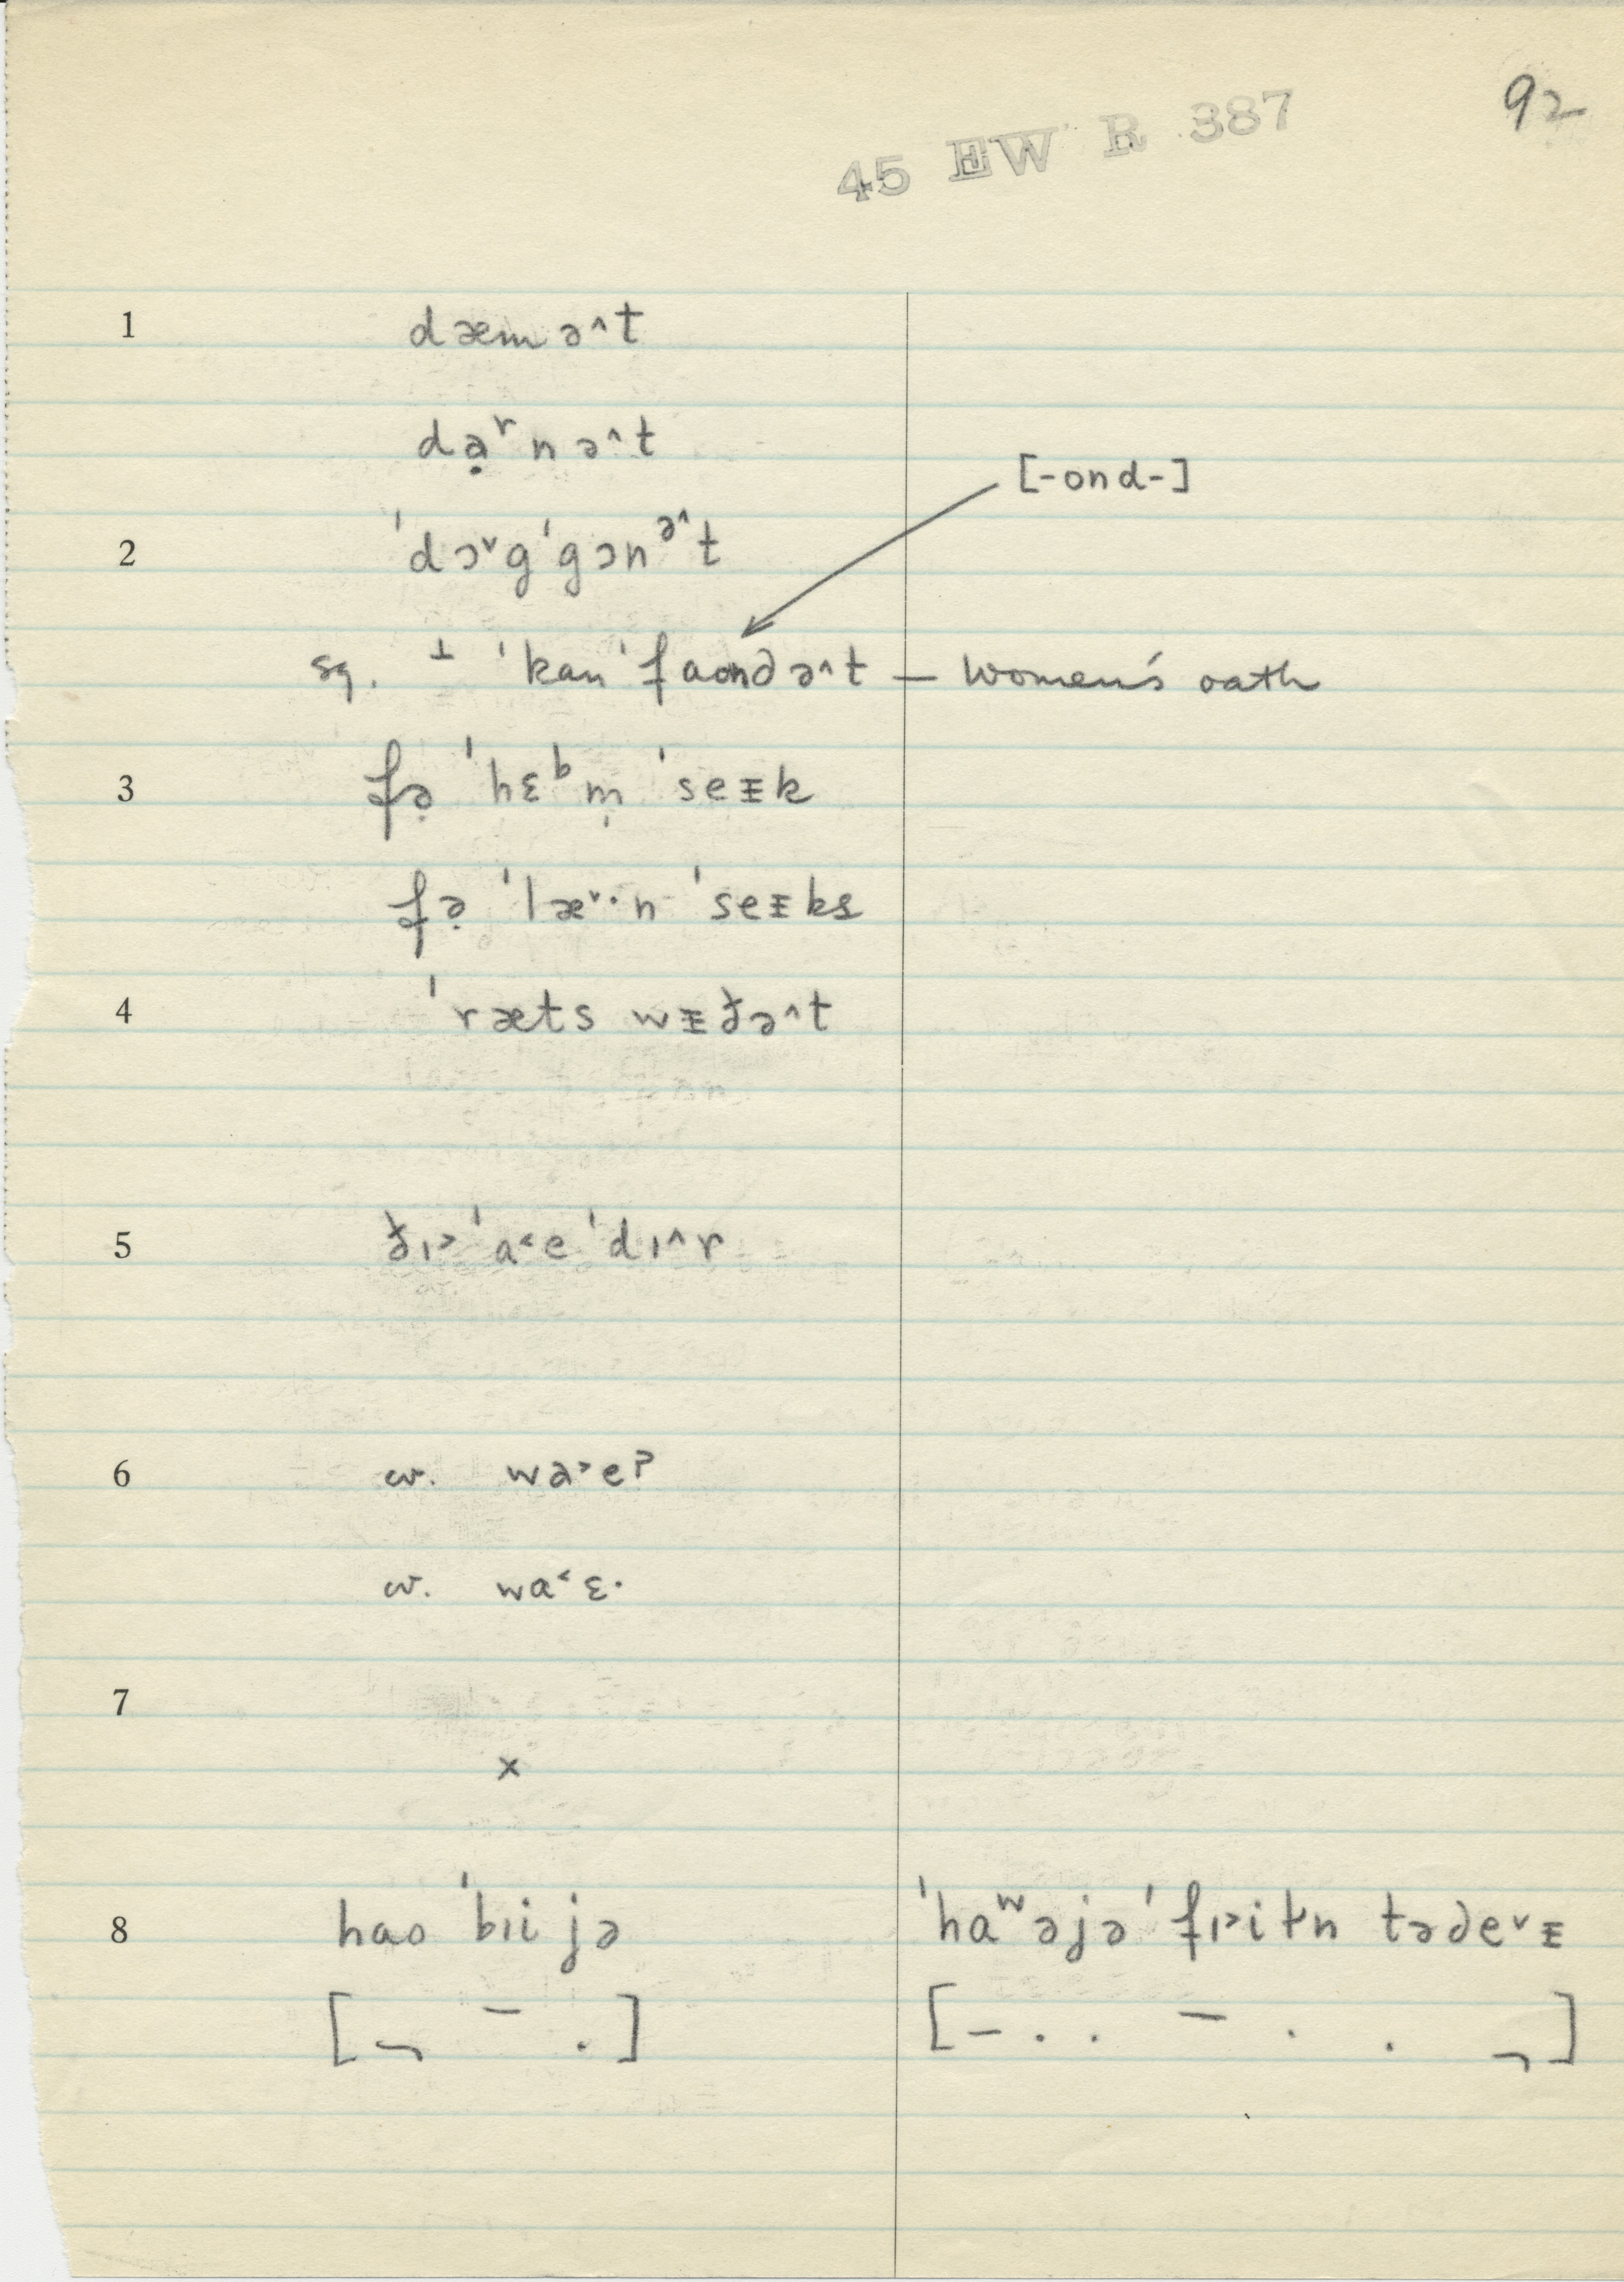 92
45 EW R 387
1 dæmə^t
dạʳnə^t
[-ond-]
2 ˈdɔ˅gˈgɔnᵊ^t
sq. ⊥ ˈkanˈfaondə^t — women's oath
3 fə̣ ˈhɛᵇm̩ ˈseᵻk
fə̣ ˈlæ˅·n ˈseᵻks
4 ˈræts wᵻðə^t
5 ðɪ˃ ˈa˂e ˈdɪ^r
6 cv. wa˃eʔ
cv. wa˂ɛ·
7
×
8 hao ˈbɪi jə ˈhaʷəjəˈfɪ˃itn təde˅ᵻ